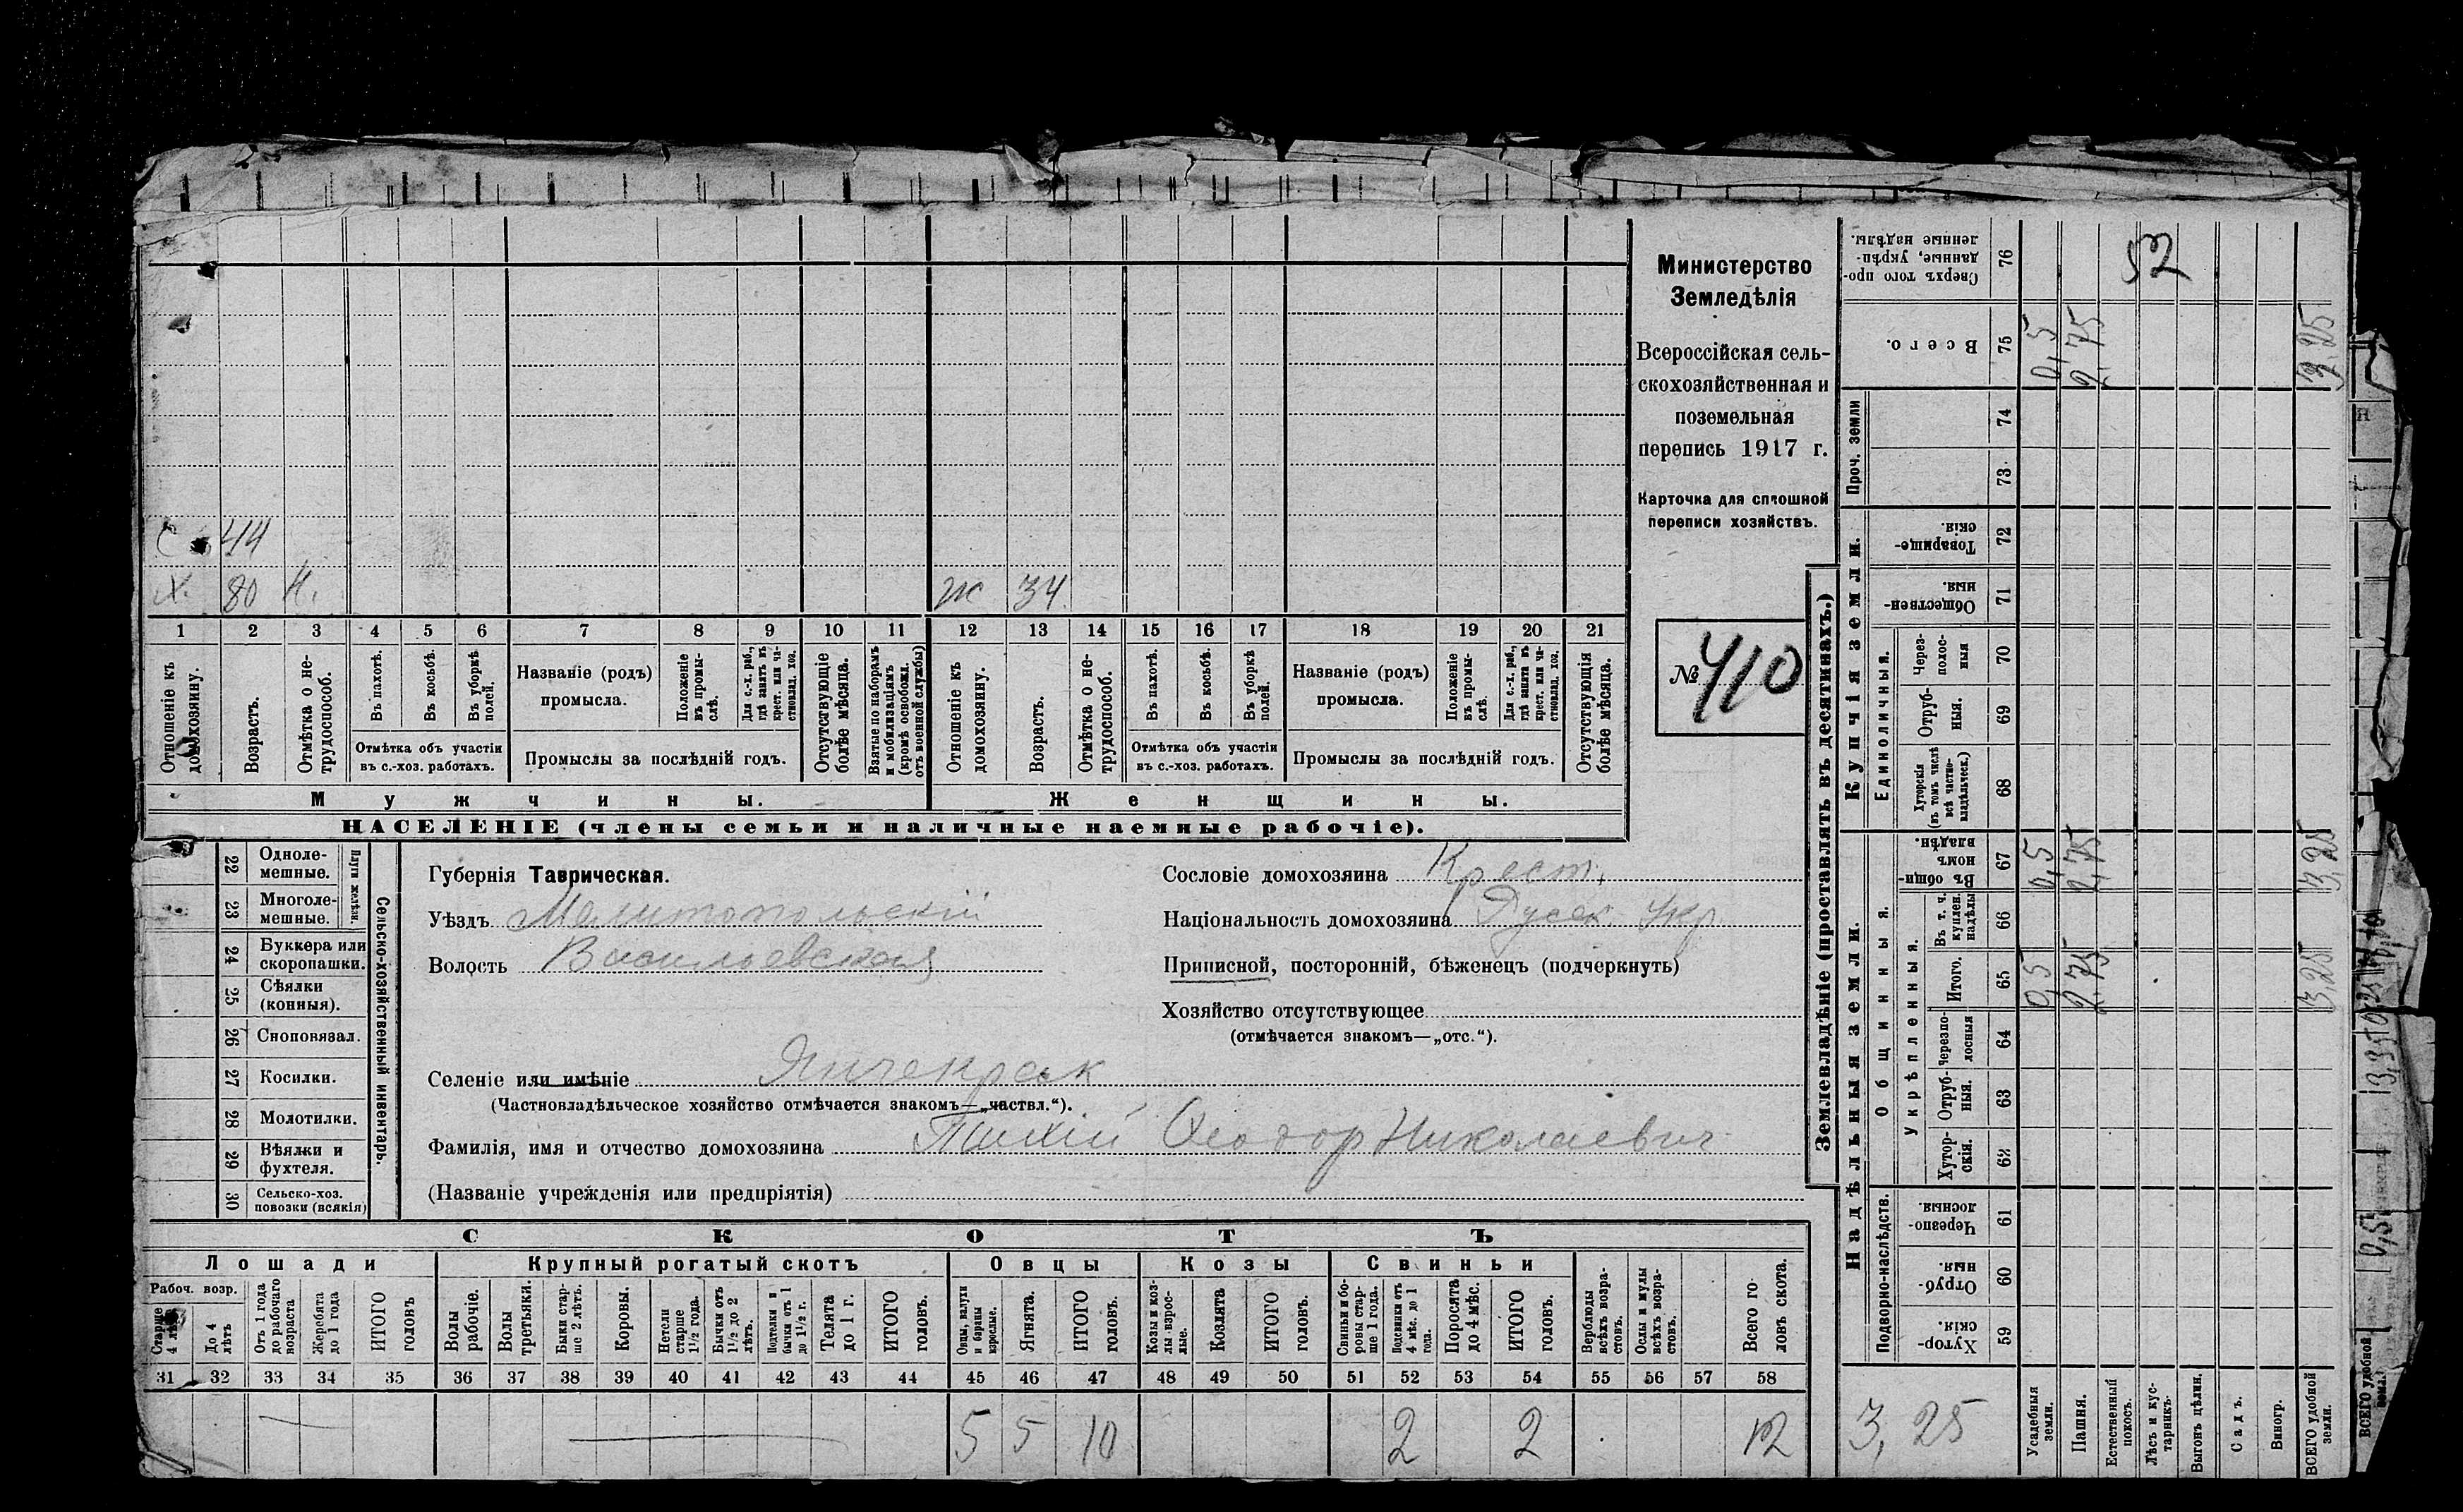 С 44
Х. 80 Н. Ж 34
1 2 3 4 5 6 7 8 9 10 11 12 13 14 15 16 17 18 19 20 21
Отношеніе къ домохозяину.
Возрастъ.
Отмѣтка о не-трудоспособ.
Въ пахотѣ.
Въ косьбѣ.
Въ уборкѣ полей.
Отмѣтка объ участіи
въ с.-хоз. работахъ.
Названіе (родъ)
промысла.
Положеніе въ промы-слѣ.
Для с.-х. раб., гдѣ занятъ въ крест. или ча-стновлад. хоз.
Промыслы за послѣдній годъ.
Отсутствующіе болѣе мѣсяца.
Взятые по наборамъ и мобилизаціямъ (кромѣ освобожд. отъ военной службы)
Отношеніе къ домохозяину.
Возрастъ.
Отмѣтка о не-трудоспособ.
Въ пахотѣ.
Въ косьбѣ.
Въ уборкѣ полей.
Отмѣтка объ участіи
въ с.-хоз. работахъ.
Названіе (родъ)
промысла.
Положеніе въ промы-слѣ.
Для с.-х. раб., гдѣ занята въ крест. или ча-стновлад. хоз.
Промыслы за послѣдній годъ.
Отсутствующія болѣе мѣсяца.
Мужчины.
Женщины.
НАСЕЛЕНІЕ (члены семьи и наличные наемные рабочіе).
Министерство
Земледѣлія
Всероссійская сель-
скохозяйственная и
поземельная
перепись 1917 г.
Карточка для сплошной
переписи хозяйствъ.
№ 410
22 Одноле-мешные.
23 Многоле-мешные.
Плуги желѣзн.
24 Буккера или скоропашки.
25 Сѣялки (конныя).
26 Сноповязал.
27 Косилки.
28 Молотилки.
29 Вѣялки и фухтеля.
30 Сельско-хоз. повозки (всякія)
Сельско-хозяйственный инвентарь.
Губернія Таврическая.
Уѣздъ Мелитопольскій
Волость Васильевская
Сословіе домохозяина Крест.
Національность домохозяина Русск. Укр.
Приписной, посторонній, бѣженецъ (подчеркнуть)
Хозяйство отсутствующее
(отмѣчается знакомъ—„отс.“).
Селеніе или имѣніе Янчекрак
(Частновладѣльческое хозяйство отмѣчается знакомъ—„частвл.“).
Фамилія, имя и отчество домохозяина Тихій Ѳеодор Николаевич
(Названіе учрежденія или предпріятія)
СКОТЪ
Лошади Крупный рогатый скотъ Овцы Козы Свиньи
Рабоч. возр.
Старше 4 лѣтъ
До 4 лѣтъ
Отъ 1 года до рабочаго возраста
Жеребята до 1 года
ИТОГО головъ
Волы рабочіе.
Волы третьяки.
Быки стар-ше 2 лѣтъ.
Коровы.
Нетели старше 1½ года.
Бычки отъ 1½ до 2 лѣтъ.
Подтелки и бычки отъ 1 до 1½ г.
Телята до 1 г.
ИТОГО головъ.
Овцы, валухи и бараны взрослые.
Ягнята.
ИТОГО головъ.
Козы и коз-лы взрос-лые.
Козлята
ИТОГО головъ.
Свиньи и бо-ровы стар-ше 1 года.
Подсвинки отъ 4 мѣс. до 1 года.
Поросята до 4 мѣс.
ИТОГО головъ.
Верблюды всѣхъ возра-стовъ.
Ослы и мулы всѣхъ возра-стовъ.
Всего го-ловъ скота.
31 32 33 34 35 36 37 38 39 40 41 42 43 44 45 46 47 48 49 50 51 52 53 54 55 56 57 58
5 5 10 2 2 12
Землевладѣніе (проставлять въ десятинахъ.)
Надѣльныя земли.
Купчія земли.
Проч. земли
Подворно-наслѣдств.
Общинныя.
Укрѣпленныя.
Единоличныя.
76 Сверхъ того про-данные, укрѣп-ленные надѣлы.
52
75 Всего. 0,5 2,75 3,25
74
73
72 Товарище-скія.
71 Обществен-ныя
70 Через-полос-ныя
69 Отруб-ныя.
68 Хуторскія (въ томъ числѣ всѣ частно-владѣльческ.)
67 Въ общи-номъ владѣн. 0,5 2,75 3,25
66 Въ т. ч. куплен. надѣлы
65 Итого. 0,5 2,75 3,25
64 Черезпо-лосныя
63 Отруб-ныя.
62 Хутор-скія.
61 Черезпо-лосныя
60 Отруб-ныя.
59 Хутор-скія.
3,25
Усадебныя земли.
Пашня.
Естественный покосъ.
Лѣсъ и кус-тарникъ.
Выгонъ цѣлин.
Садъ.
Виногр.
ВСЕГО удобной земли.
ВСЕГО удобной земл.
0,5